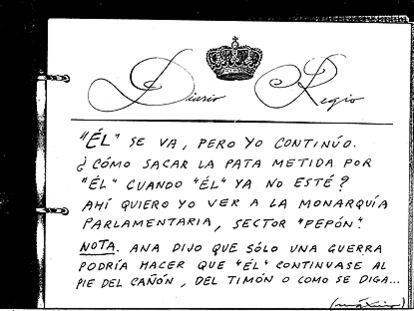 Diario Regio
"ÉL" SE VA, PERO YO CONTINÚO.
¿CÓMO SACAR LA PATA METIDA POR
"ÉL" CUANDO "ÉL" YA NO ESTÉ?
AHÍ QUIERO YO VER A LA MONARQUÍA
PARLAMENTARIA, SECTOR "PEPÓN".
NOTA. ANA DIJO QUE SÓLO UNA GUERRA
PODRÍA HACER QUE "ÉL" CONTINUASE AL
PIE DEL CAÑÓN, DEL TIMÓN O COMO SE DIGA...